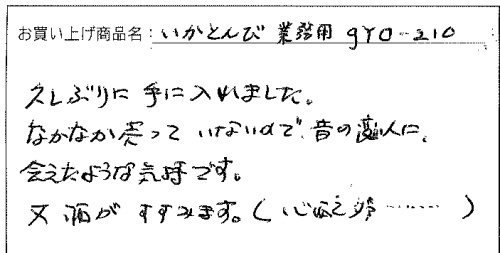 お買い上げ商品名：いかとんび 業務用 gyo-210
久しぶりに 手に入れました。
なかなか売って いないので、昔の恋人に、
会えたような気持です。
又 酒が すすみます。( 心配 ……… )